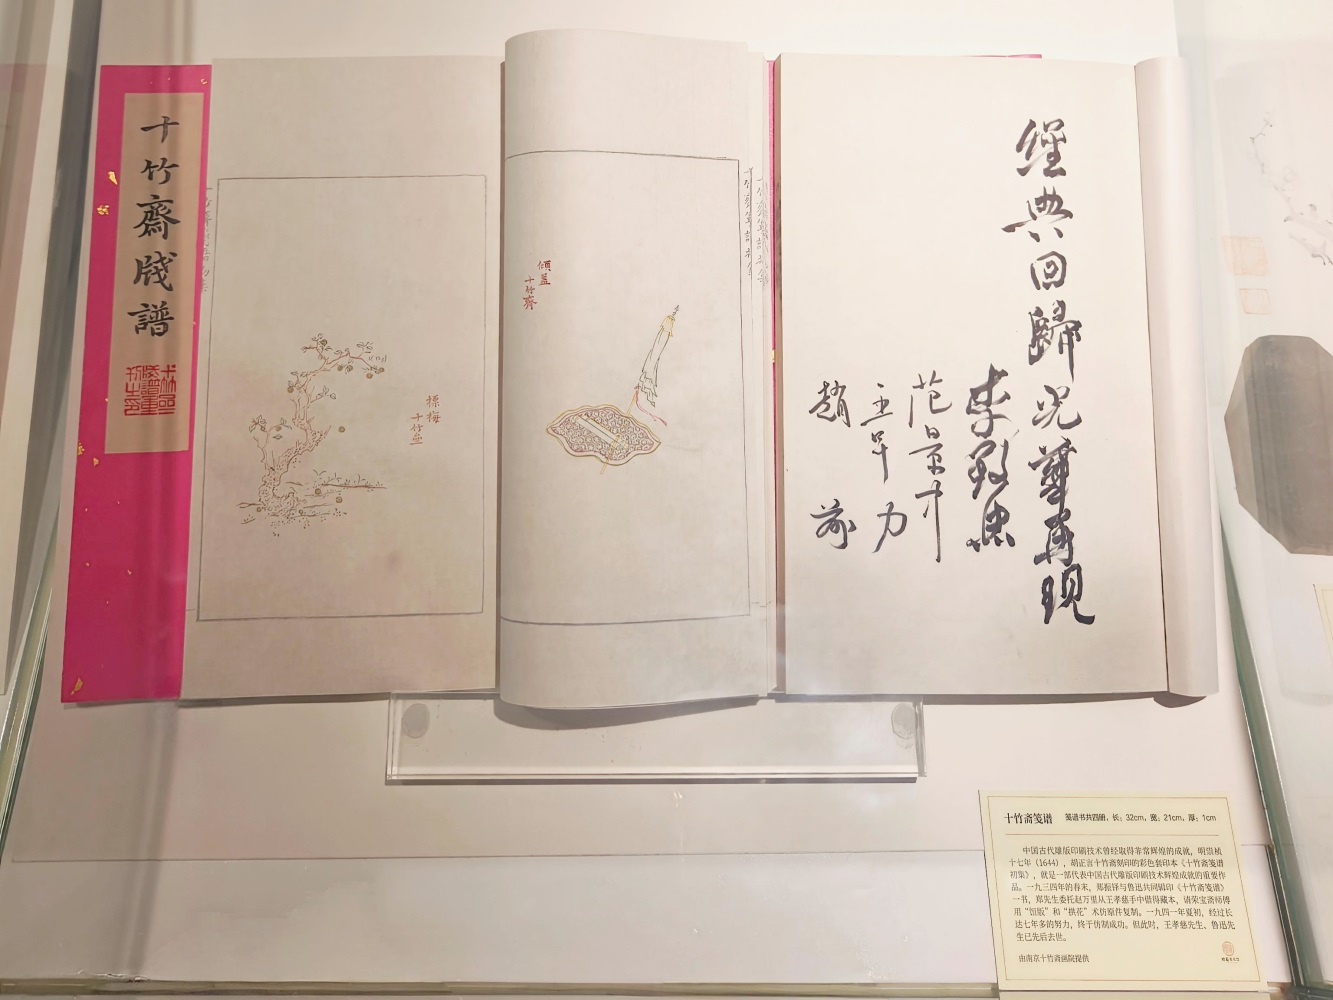 十竹齋牋譜
摽梅
十竹斋
傾蓋
十竹齋
經典回歸
范景中
王平
力
趙
前
十竹斋笺谱 笺谱书共四册，长：32cm，宽：21cm，厚：1cm
中国古代雕版印刷技术曾经取得非常辉煌的成就，明崇祯
十七年（1644），胡正言十竹斋刻印的彩色套印本《十竹斋笺谱
初集》，就是一部代表中国古代雕版印刷技术辉煌成就的重要作
品。一九三四年的春末，郑振铎与鲁迅共同辑印《十竹斋笺谱》
一书，郑先生委托赵万里从王孝慈手中借得藏本，请荣宝斋师傅
用“饾版”和“拱花”术仿原件复制。一九四一年夏初，经过长
达七年多的努力，终于仿制成功。但此时，王孝慈先生、鲁迅先
生已先后去世。
由南京十竹斋画院提供